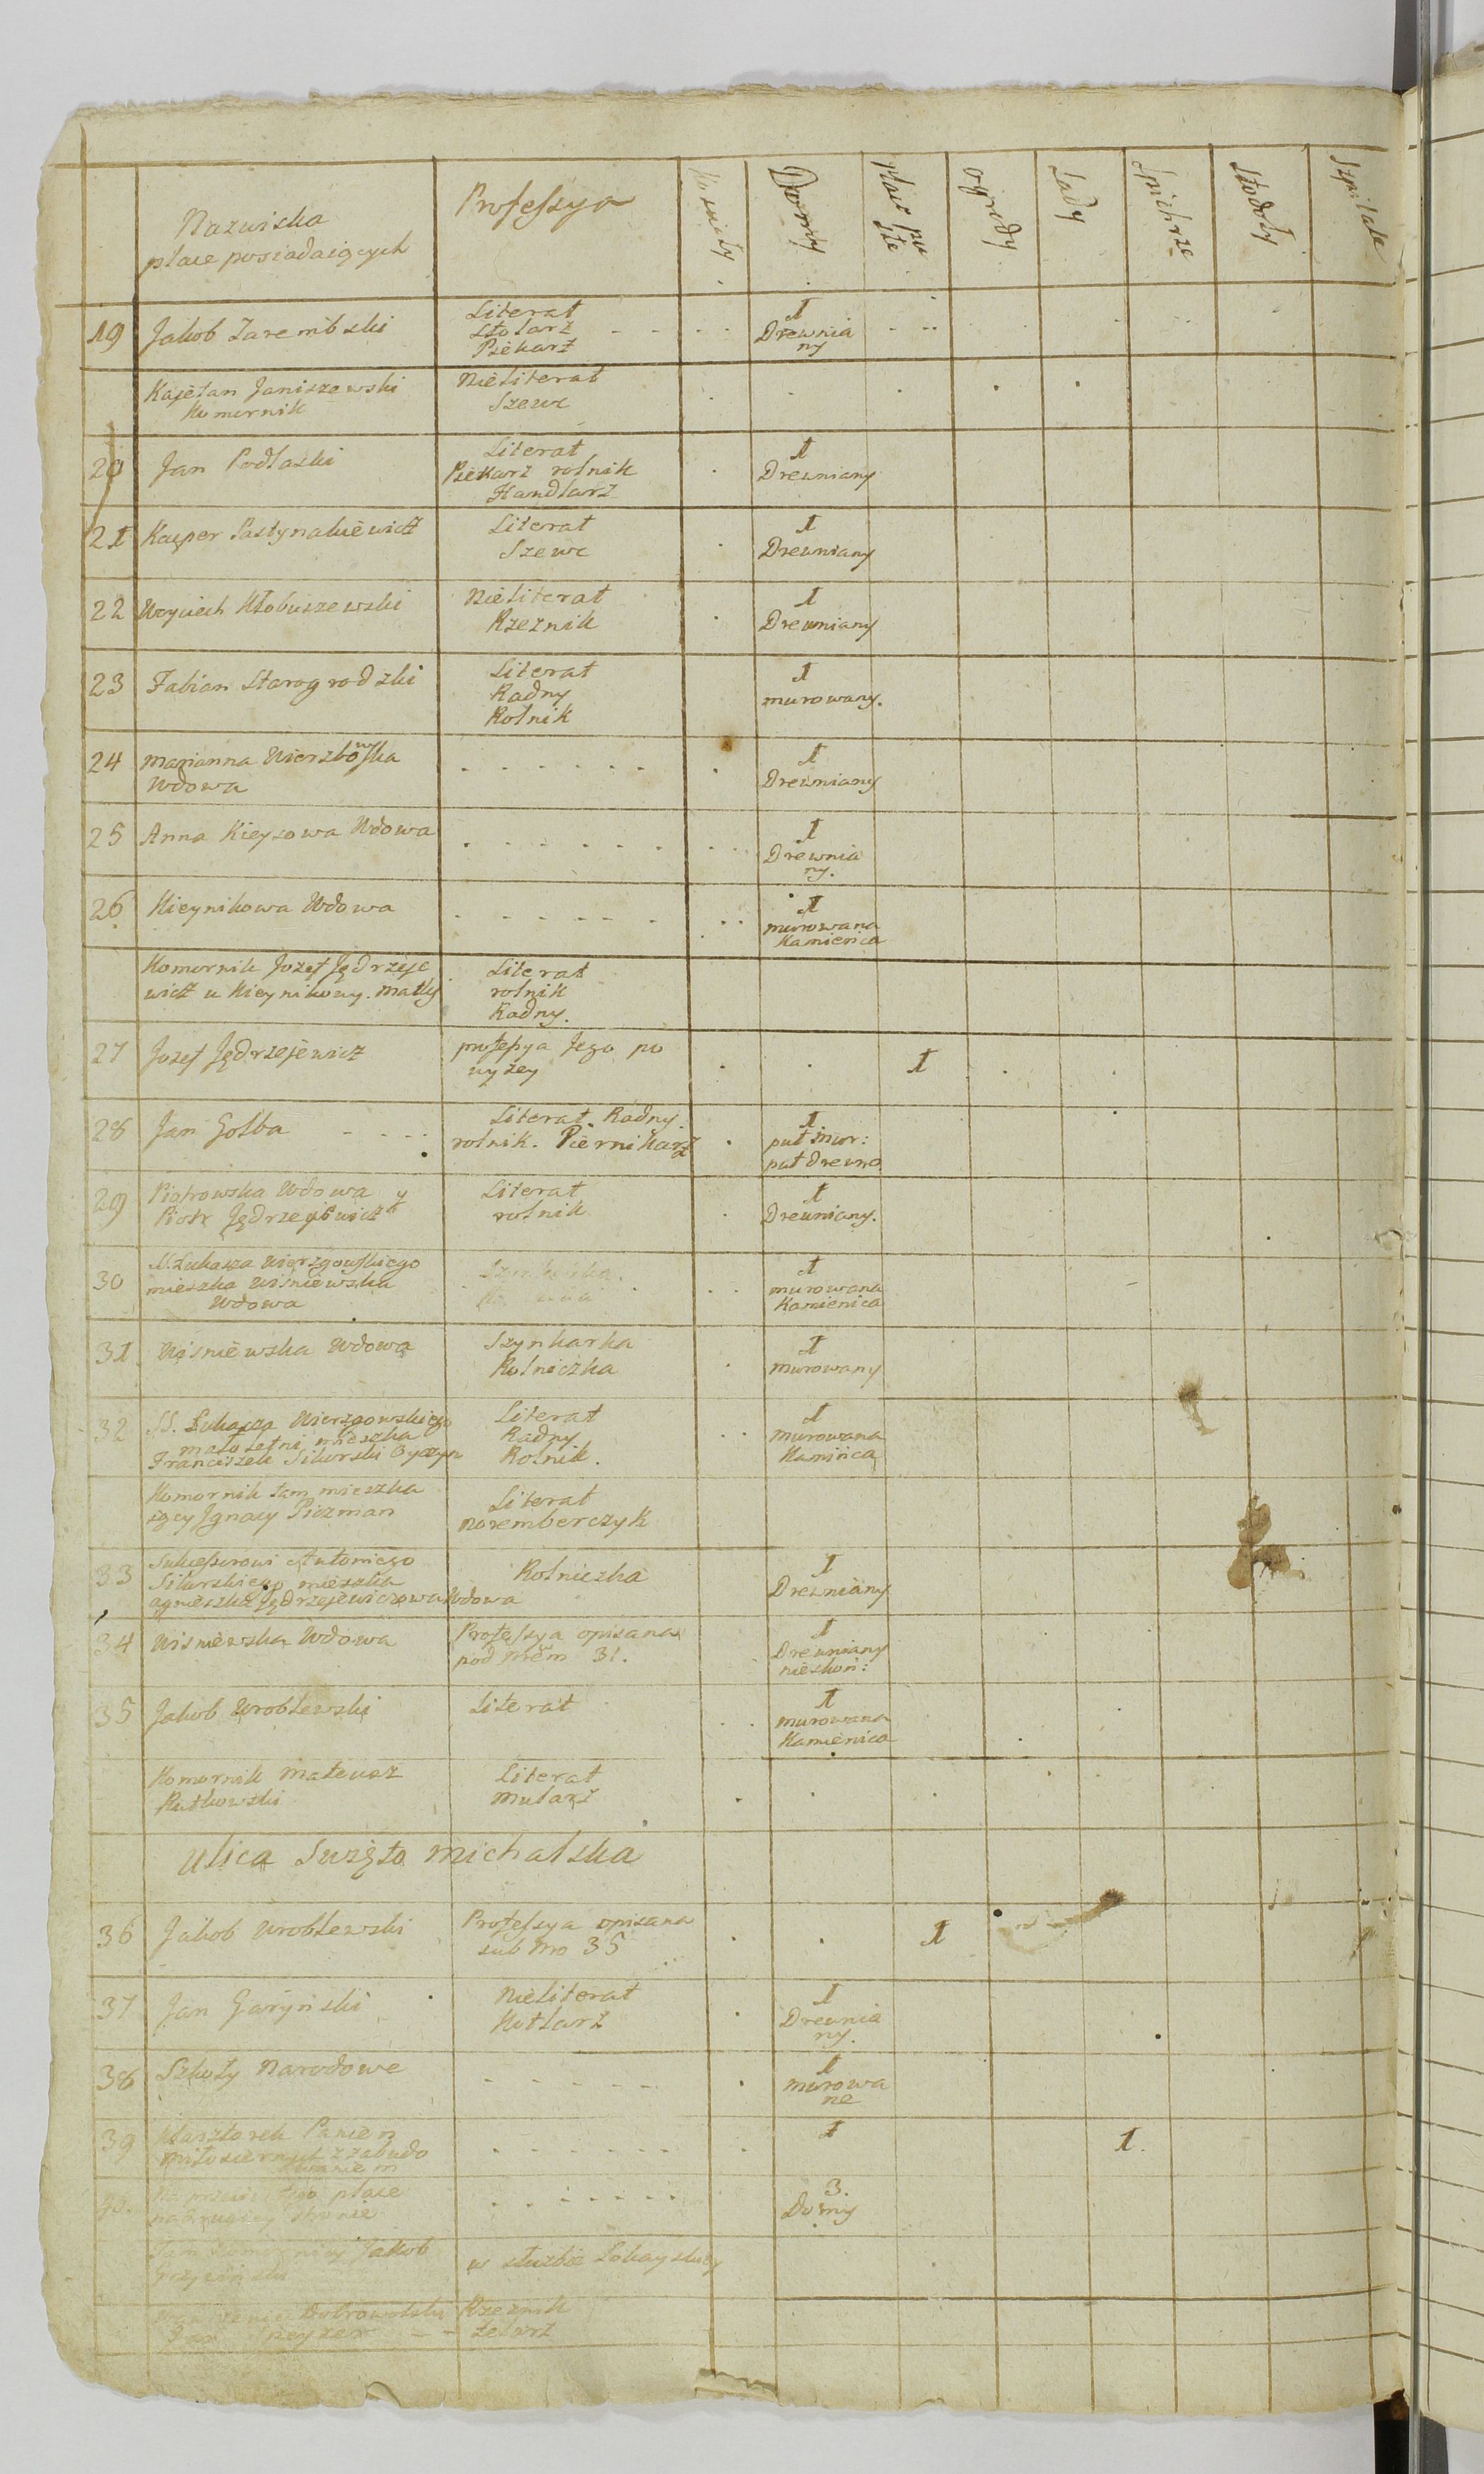 Nazwiska
place posiadaiących
Professya
Kościoły
Domy
place pu
ste
ogrody
Sady
Spichrze
Stodoły
Szpitale
19 Jakob Zarembski
Literat
Stolarz
Piekarz
1
Drewnia
ny
Kajetan Janiszewski
Komornik
Nieliterat
Szewc
20 Jan Podlaski
Literat
Piekarz rolnik
Handlarz
1
Drewniany
21 Kacper Pastynakiewicz
Literat
Szewc
1
Drewniany
22 Woyciech Kłobuszewski
Nieliterat
Rzeznik
1
Drewniany
23 Fabian Starogrodzki
Literat
Radny
Rolnik
1
murowany.
24 Marianna Wierzbowska
Wdowa
1
Drewniany
25 Anna Kieysowa Wdowa
1
Drewnia
ny.
26 Kieynikowa Wdowa
1
murowana
Kamienica
Komornik Jozef Jędrzeje
wicz u Kieynikowy. Matki
Literat
rolnik
Radny.
27 Jozef Jędrzejewicz
professya Jego po
wyżey
1
28 Jan Golba
Literat. Radny.
rolnik. Piernikarz
1
puł mur:
puł drewno
29 Piotrowska Wdowa y
Piotr Jędrzejewicz
Literat
rolnik
1
Drewniany.
30 Łukasza Wierzgowskiego
mieszka Wiśniewska
Wdowa
Szynkarka
1
murowana
Kamienica
31 Wiśniewska Wdowa
Szynkarka
Rolniczka
1
murowany
32 SS. Łukasza Wierzgowskiego
małoletni mieszka
Franciszek Sikorski Oyczym
Literat
Radny
Rolnik.
1
murowana
Kaminica
Komornik tam mieszka
iący Ignacy Piczman
Literat
Noremberczyk
33 Sukcessorowi Antoniego
Sikorskiego mieszka
agnieszka Jędrzejewiczowa Wdowa
Rolniczka
1
Drewniany
34 Wiśniewska Wdowa
Professya opisana
pod Nrem 31.
1
Drewniany
nieskoń:
35 Jakob Wroblewski
Literat
1
murowana
Kamienica
Komornik Mateusz
Rutkowski
Literat
Mularz
Ulica Swięto Michalska
36 Jakob Wroblewski
Professya opisana
sub Nro 35
1
37 Jan Garyński
Nieliterat
Kotlarz
1
Drewnia
ny.
38 Szkoły Narodowe
1
murowa
ne
39 Klasztorek Panien
Miłosiernych z zabudo
waniem
1
1.
40. place
na drugiey stronie
3.
Domy
Jakob
w służbie Lokayskiey
Dobrowolski Rzeznik
Jan